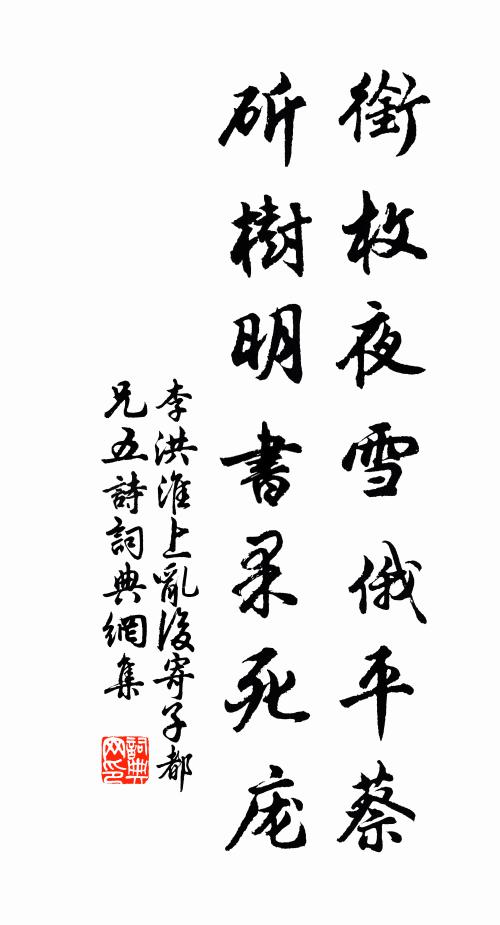 銜枚夜雪俄平蔡
斫樹明書果死庞
李洪淮上亂後寄子都
兄五詩詞典網集
詞典
网印